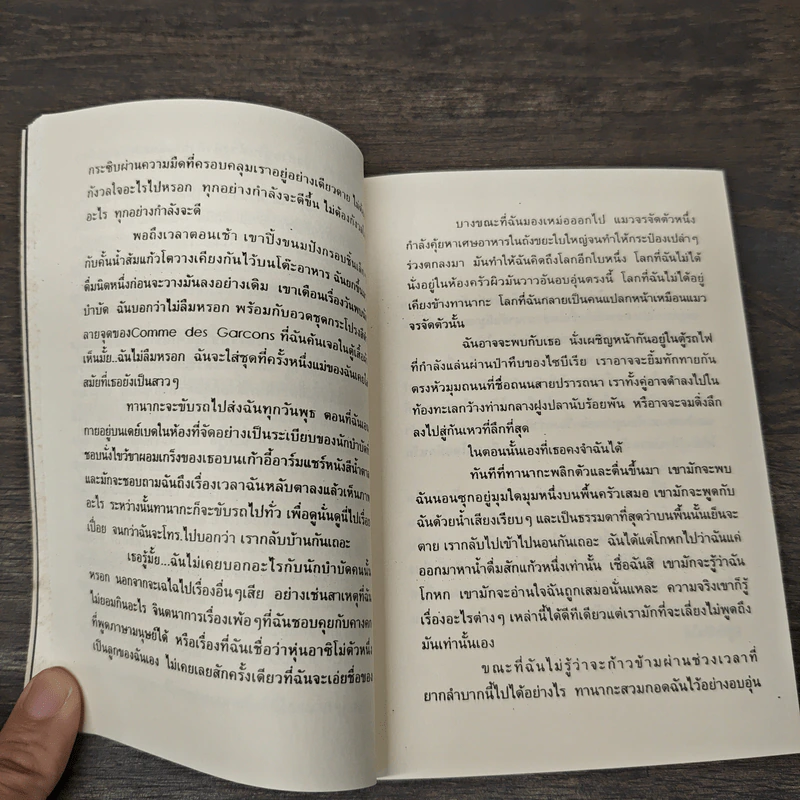 กระซิบผ่านความมืดที่ครอบคลุมเราอยู่อย่างเดียวดาย
กังวลใจอะไรไปหรอก ทุกอย่างกำลังจะดีขึ้น ไม่ต้อง
อะไร ทุกอย่างกำลังจะดี
พอถึงเวลาตอนเช้า เขาปิ้งขนมปังกรอบชิ้นเล็ก
กับคั้นน้ำส้มแก้วโตวางเคียงกันไว้บนโต๊ะอาหาร ฉันยกขึ้น
ดื่มนิดหนึ่งก่อนจะวางมันลงอย่างเดิม เขาเตือนเรื่องวันพบ
บำบัด ฉันบอกว่าไม่ลืมหรอก พร้อมกับอวดชุดกระโปรง
ลายจุดของComme des Garcons ที่ฉันค้นเจอในตู้เสื้อ
เห็นมั้ย..ฉันไม่ลืมหรอก ฉันจะใส่ชุดที่ครั้งหนึ่งแม่ของฉัน
สมัยที่เธอยังเป็นสาวๆ
ทานากะจะขับรถไปส่งฉันทุกวันพุธ ตอนที่ฉัน
กายอยู่บนเดย์เบดในห้องที่จัดอย่างเป็นระเบียบของนักบำบัด
ชอบนั่งไขว้ขาผอมเกร็งของเธอบนเก้าอี้อาร์มแชร์หนังสีน้ำตาล
และมักจะชอบถามฉันถึงเรื่องเวลาฉันหลับตาลงแล้วเห็นภาพ
อะไร ระหว่างนั้นทานากะก็จะขับรถไปทั่ว เพื่อดูนั่นดูนี่ไปเรื่อย
เปื่อย จนกว่าฉันจะโทร.ไปบอกว่า เรากลับบ้านกันเถอะ
เธอรู้มั้ย...ฉันไม่เคยบอกอะไรกับนักบำบัดคนนั้น
หรอก นอกจากจะเฉไฉไปเรื่องอื่นๆเสีย อย่างเช่นสาเหตุที่ฉัน
ไม่ยอมกินอะไร จินตนาการเรื่องเพ้อๆที่ฉันชอบคุยกับคางคก
ที่พูดภาษามนุษย์ได้ หรือเรื่องที่ฉันเชื่อว่าหุ่นอาซิโมตัวหนึ่ง
เป็นลูกของฉันเอง ไม่เคยเลยสักครั้งเดียวที่ฉันจะเอ่ยชื่อของ
บางขณะที่ฉันมองเหม่อออกไป แมวจรจัดตัวหนึ่ง
กำลังคุ้ยหาเศษอาหารในถังขยะใบใหญ่จนทำให้กระป๋องเปล่าๆ
ร่วงตกลงมา มันทำให้ฉันคิดถึงโลกอีกใบหนึ่ง โลกที่ฉันไม่ได้
นั่งอยู่ในห้องครัวผิวมันวาวอันอบอุ่นตรงนี้ โลกที่ฉันไม่ได้อยู่
เคียงข้างทานากะ โลกที่ฉันกลายเป็นคนแปลกหน้าเหมือนแมว
จรจัดตัวนั้น
ฉันอาจจะพบกับเธอ นั่งเผชิญหน้ากันอยู่ในตู้รถไฟ
ที่กำลังแล่นผ่านป่าทึบของไซบีเรีย เราอาจจะยิ้มทักทายกัน
ตรงหัวมุมถนนที่ชื่อถนนสายปรารถนา เราทั้งคู่อาจดำลงไปใน
ท้องทะเลกว้างท่ามกลางฝูงปลานับร้อยพัน หรืออาจจะจมดิ่งลึก
ลงไปสู่ก้นเหวที่ลึกที่สุด
ในตอนนั้นเองที่เธอคงจำฉันได้
ทันทีที่ทานากะพลิกตัวและตื่นขึ้นมา เขามักจะพบ
ฉันนอนซุกอยู่มุมใดมุมหนึ่งบนพื้นครัวเสมอ เขามักจะพูดกับ
ฉันด้วยน้ำเสียงเรียบๆ และเป็นธรรมดาที่สุดว่าบนพื้นนั้นเย็นจะ
ตาย เรากลับไปเข้าไปนอนกันเถอะ ฉันได้แต่โกหกไปว่าฉันแค่
ออกมาหาน้ำดื่มสักแก้วหนึ่งเท่านั้น เชื่อฉันสิ เขามักจะรู้ว่าฉัน
โกหก เขามักจะอ่านใจฉันถูกเสมอนั่นแหละ ความจริงเขาก็รู้
เรื่องอะไรต่างๆ เหล่านี้ได้ดีทีเดียวแต่เรามักที่จะเลี่ยงไม่พูดถึง
มันเท่านั้นเอง
ขณะที่ฉันไม่รู้ว่าจะก้าวข้ามผ่านช่วงเวลาที่
ยากลำบากนี้ไปได้อย่างไร ทานากะสวมกอดฉันไว้อย่างอบอุ่น